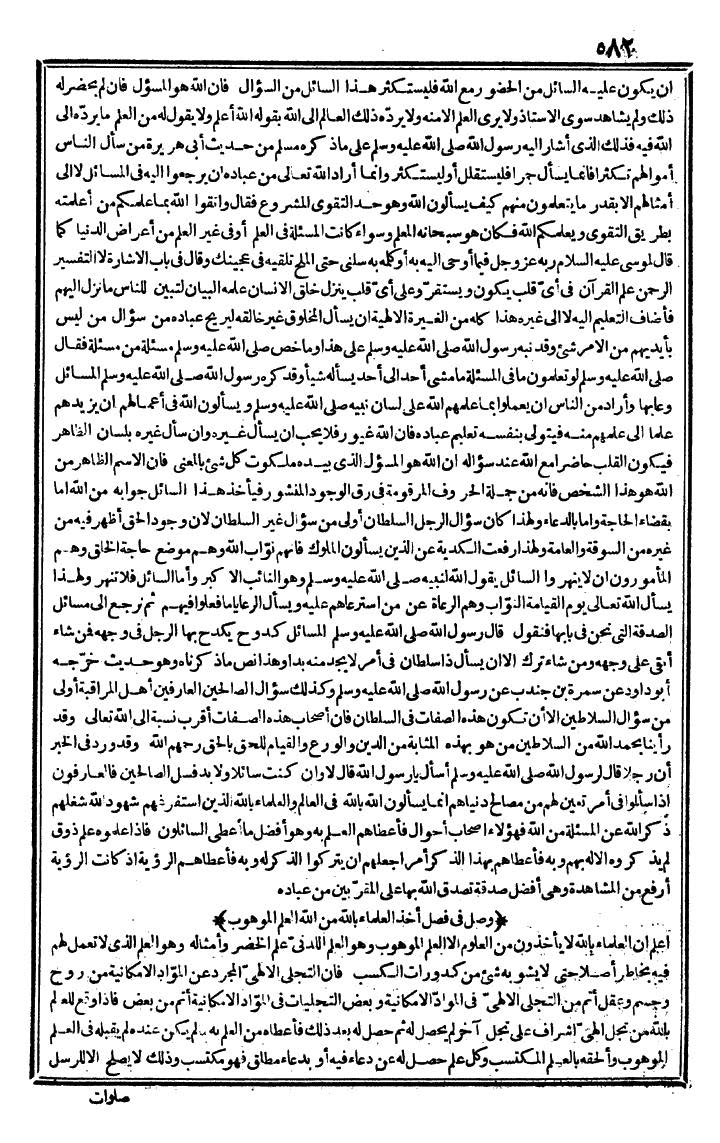 ٥٨٢
ان يكون عليه السائل من الحضور مع الله فليستكثر هذا السائل من السؤال فان الله هو المسؤل فان لم يحضر له
ذلك ولم يشاهد سوى الاستاذ ولا يرى العلم الا منه ولا يرده ذلك العالم الى الله بقوله الله أعلم ولا يقول له من العلم ما يرده الى
الله فيه فذلك الذى أشار اليه رسول الله صلى الله عليه وسلم على ماذكره مسلم من حديث أبى هريرة من سأل الناس
أموالهم تكثرا فانما يسأل جرا فليستقلل أو ليستكثر وانما أراد الله تعالى من عباده ان يرجعوا اليه فى المسائل لا الى
أمثالهم الا بقدر ما يتعلمون منهم كيف يسألون الله وهو حد التقوى المشروع فقال واتقوا الله بما علمكم من أعلمته
بطريق التقوى ويعلمكم الله فكان هو سبحانه المعلم وسواء كانت المسئلة فى العلم أو فى غير العلم من أعراض الدنيا كما
قال لموسى عليه السلام ربه عز وجل فيما أوحى اليه به أو كلمه به سلنى حتى الملح تلقيه فى عجينك وقال فى باب الاشارة لا التفسير
الرحمن علم القرآن فى أىّ قلب يكون ويستقر وعلى أىّ قلب ينزل خلق الانسان علمه البيان لتبين للناس ما نزل اليهم
فأضاف التعليم اليه لا الى غيره هذا كله من الغيرة الالهية ان يسأل المخلوق غير خالقه ليريح عباده من سؤال من ليس
بأيديهم من الامر شئ وقد نبه رسول الله صلى الله عليه وسلم على هذا وما خص صلى الله عليه وسلم مسئلة من مسئلة فقال
صلى الله عليه وسلم لو تعلمون ما فى المسئلة ما مشى أحد الى أحد يسأله شيأ وقد كره رسول الله صلى الله عليه وسلم المسائل
وعابها وأراد من الناس ان يعملوا بما علمهم الله على لسان نبيه صلى الله عليه وسلم ويسألون الله فى أعمالهم ان يزيدهم
علما الى علمهم منه فيتولى بنفسه تعليم عباده فان الله غيور فلا يحب ان يسأل غيره وان سأل غيره بلسان الظاهر
فيكون القلب حاضرا مع الله عند سؤاله ان الله هو المسؤل الذى بيده ملكوت كل شئ بالمعنى فان الاسم الظاهر من
الله هو هذا الشخص فانه من جملة الحروف المرقومة فى رق الوجود المنشور فيأخذ هذا السائل جوابه من الله اما
بقضاء الحاجة واما بالدعاء ولهذا كان سؤال الرجل السلطان أولى من سؤال غير السلطان لان وجود الحق أظهر فيه من
غيره من السوقة والعامة ولهذا رفعت الكدية عن الذين يسألون الملوك فانهم نوّاب الله وهم موضع حاجة الخلق وهم
المأمورون ان لا ينهروا السائل يقول الله لنبيه صلى الله عليه وسلم وهو النائب الاكبر وأما السائل فلا تنهر ولهذا
يسأل الله تعالى يوم القيامة النوّاب وهم الرعاة عن من استرعاهم عليه ويسأل الرعايا ما فعلوا فيهم ثم نرجع الى مسائل
الصدقة التى نحن فى بابها فنقول قال رسول الله صلى الله عليه وسلم المسائل كدوح يكدح بها الرجل فى وجهه فمن شاء
أبقى على وجهه ومن شاء ترك الا ان يسأل ذا سلطان فى أمر لا يجد منه بدا وهذا نص ماذكرناه وهو حديث خرّجه
أبو داود عن سمرة بن جندب عن رسول الله صلى الله عليه وسلم وكذلك سؤال الصالحين العارفين أهل المراقبة أولى
من سؤال السلاطين الا أن تكون هذه الصفات فى السلطان فان أصحاب هذه الصفات أقرب نسبة الى الله تعالى وقد
رأينا بحمد الله من السلاطين من هو بهذه المثابة من الدين والورع والقيام للحق بالحق رحمهم الله وقد ورد فى الخبر
أن رجلا قال لرسول الله صلى الله عليه وسلم أسأل يارسول الله قال لا وان كنت سائلا ولا بد فسل الصالحين فالعارفون
اذا سألوا فى أمر تعين لهم من مصالح دنياهم انما يسألون الله بالله فى العالم والعلماء بالله الذين استفرغهم شهود الله شغلهم
ذكر الله عن المسئلة من الله فهؤلاء اصحاب أحوال فأعطاهم العلم به وهو أفضل ما أعطى السائلون فاذا علموه علم ذوق
لم يذكروه الا له بهم وبه فأعطاهم بهذا الذكر أمر اجعلهم ان يتركوا الذكر له وبه فأعطاهم الرؤية اذ كانت الرؤية
أرفع من المشاهدة وهى أفضل صدقة تصدق الله بها على المقرّبين من عباده
﴿وصل فى فصل أخذ العلماء بالله من الله العلم الموهوب﴾
اعلم ان العلماء بالله لا يأخذون من العلوم الا العلم الموهوب وهو العلم اللدنىّ علم الخضر وأمثاله وهو العلم الذى لا تعمل لهم
فيه بخاطر أصلا حتى لا يشوبه شئ من كدورات الكسب فان التجلى الالهىّ المجرد عن الموادّ الامكانية من روح
وجسم وعقل أتم من التجلى الالهىّ فى الموادّ الامكانية وبعض التجليات فى الموادّ الامكانية أتم من بعض فاذا وقع للعالم
بالله من تجل الهىّ اشراف على تجل آخر لم يحصل له ثم حصل له بعد ذلك فأعطاه من العلم به ما لم يكن عنده لم يقبله فى العلم
الموهوب وألحقه بالعلم المكتسب وكل علم حصل له عن دعاء فيه أو بدعاء مطلق فهو مكتسب وذلك لا يصلح الا للرسل
صلوات